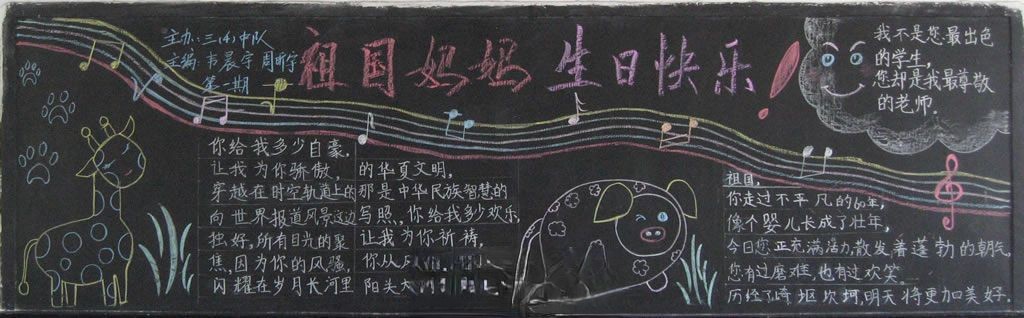 主办:三(4)中队
主编:韦晨宇 周昕宇
第一期
祖国妈妈 生日快乐!
我不是您最出色
的学生,
您却是我最尊敬
的老师.
你给我多少自豪,
让我为你骄傲,
穿越在时空轨道上的
向世界报道风景这边
独好,所有目光的聚
焦,因为你的风骚,
闪耀在岁月长河里
的华夏文明,
那是中华民族智慧的
写照,你给我多少欢乐,
让我为你祈祷,
你从风
阳头
祖国,
你走过不平凡的60年,
像个婴儿长成了壮年,
今日您正充满活力,散发着蓬勃的朝气,
您有过磨难也有过欢笑.
历经了崎岖坎坷,明天将更加美好.